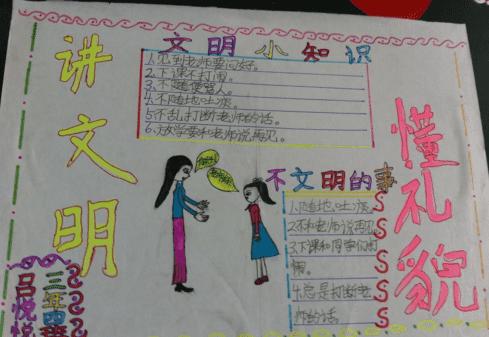 讲文明
文明小知识
1.见到老师要问好。
2.下课不打闹。
3.不随便骂人。
4.不随地吐痰。
5.不乱打断老师的话。
6.放学要和老师说再见。
懂礼貌
不文明的事
1.随地吐痰。
2.不和老师说再见
3.下课和同学们打
闹。
4.总是打断老
师的话。
三年四班
吕悦悦